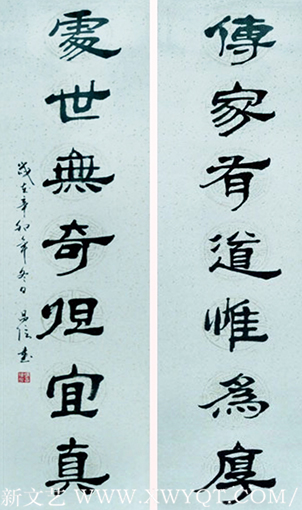 傳家有道惟爲厚
處世無奇但宜真
歲在辛卯年冬日
新文艺 WWW.XWYQT.COM